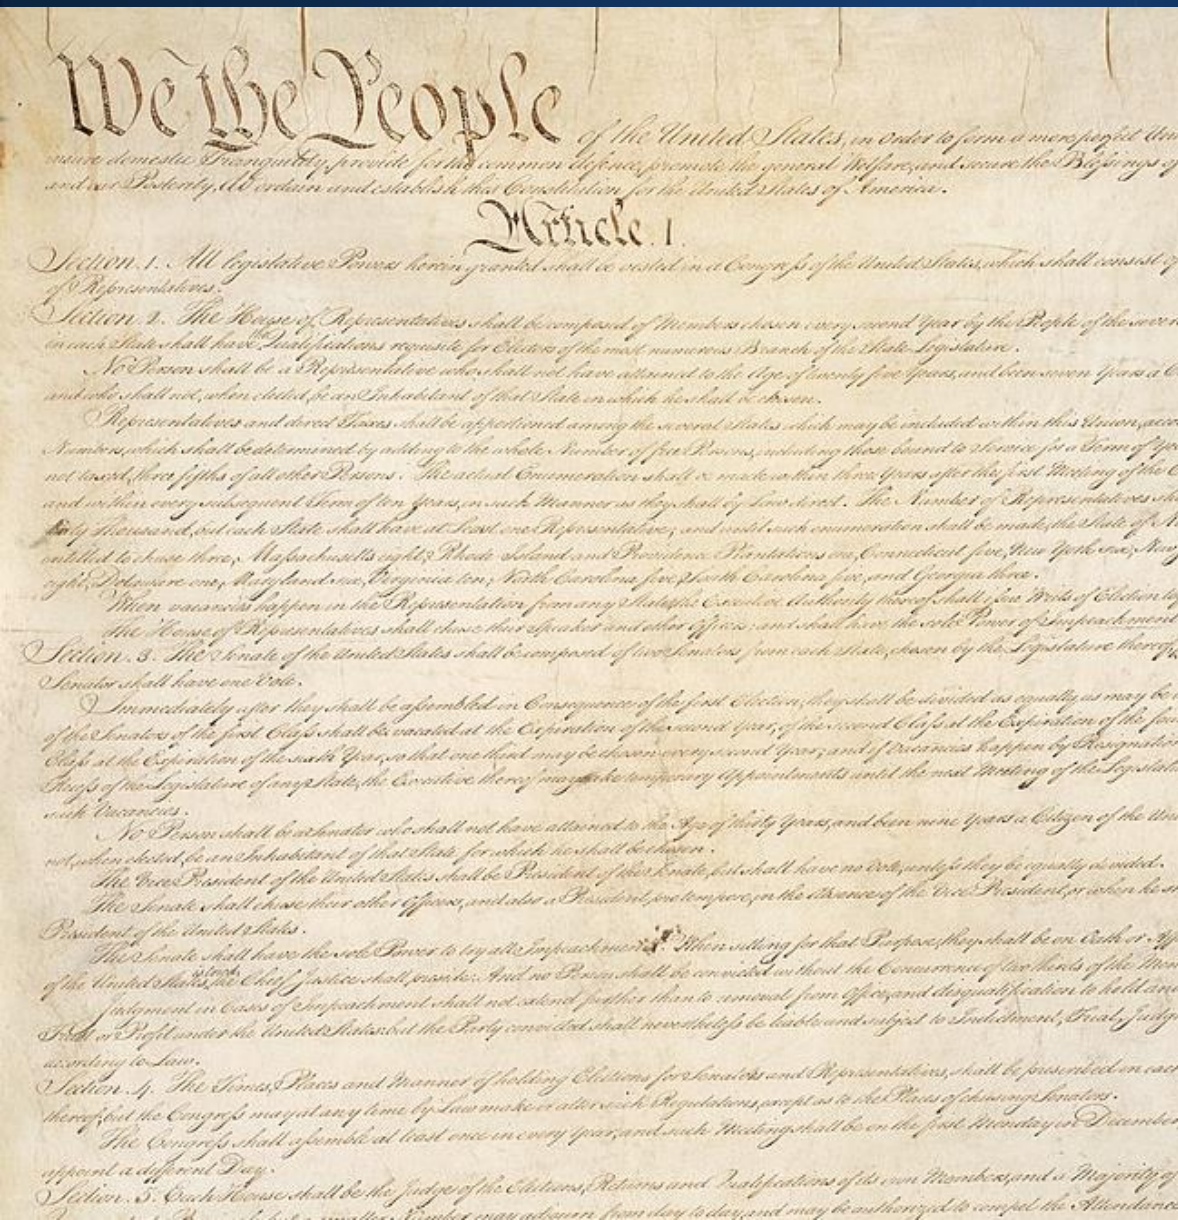 We the People of the United States, in Order to form a more perfect
insure domestic Tranquility, provide for the common defence, promote the general Welfare, and secure the Blessings of
and our Posterity, do ordain and establish this Constitution for the United States of America.
Article. I.
Section. 1. All legislative Powers herein granted shall be vested in a Congress of the United States, which shall consist of
of Representatives.
Section. 2. The House of Representatives shall be composed of Members chosen every second Year by the People of the
in each State shall have the Qualifications requisite for Electors of the most numerous Branch of the State Legislature.
No Person shall be a Representative who shall not have attained to the Age of twenty five Years, and been seven Years a
and who shall not, when elected, be an Inhabitant of that State in which he shall be chosen.
Representatives and direct Taxes shall be apportioned among the several States which may be included within this Union,
Numbers, which shall be determined by adding to the whole Number of free Persons, including those bound to Service for a Term of
not taxed, three fifths of all other Persons. The actual Enumeration shall be made within three Years after the first Meeting of the
and within every subsequent Term of ten Years, in such Manner as they shall by Law direct. The Number of Representatives
thirty Thousand, but each State shall have at Least one Representative; and until such enumeration shall be made, the State of
entitled to chuse three, Massachusetts eight, Rhode Island and Providence Plantations one, Connecticut five, New York six, New
eight, Delaware one, Maryland six, Virginia ten, North Carolina five, South Carolina five, and Georgia three.
When vacancies happen in the Representation from any State, the Executive Authority thereof shall issue Writs of Election to
The House of Representatives shall chuse their Speaker and other Officers; and shall have the sole Power of Impeachment
Section. 3. The Senate of the United States shall be composed of two Senators from each State, chosen by the Legislature thereof,
Senator shall have one Vote.
Immediately after they shall be assembled in Consequence of the first Election, they shall be divided as equally as may be
of the Senators of the first Class shall be vacated at the Expiration of the second Year, of the second Class at the Expiration of the
Class at the Expiration of the sixth Year, so that one third may be chosen every second Year; and if Vacancies happen by Resignation
Recess of the Legislature of any State, the Executive thereof may make temporary Appointments until the next Meeting of the
such Vacancies.
No Person shall be a Senator who shall not have attained to the Age of thirty Years, and been nine Years a Citizen of the
not, when elected, be an Inhabitant of that State for which he shall be chosen.
The Vice President of the United States shall be President of the Senate, but shall have no Vote, unless they be equally divided.
The Senate shall chuse their other Officers, and also a President pro tempore, in the Absence of the Vice President, or when he
President of the United States.
The Senate shall have the sole Power to try all Impeachments. When sitting for that Purpose, they shall be on Oath or
of the United States is tried, the Chief Justice shall preside: And no Person shall be convicted without the Concurrence of two thirds of the
Judgment in Cases of Impeachment shall not extend further than to removal from Office, and disqualification to hold and
Trust or Profit under the United States: but the Party convicted shall nevertheless be liable and subject to Indictment, Trial,
according to Law.
Section. 4. The Times, Places and Manner of holding Elections for Senators and Representatives, shall be prescribed in each
thereof; but the Congress may at any time by Law make or alter such Regulations, except as to the Places of chusing Senators.
The Congress shall assemble at least once in every Year, and such Meeting shall be on the first Monday in December
appoint a different Day.
Section. 5. Each House shall be the Judge of the Elections, Returns and Qualifications of its own Members, and a Majority of
smaller Number may adjourn from day to day, and may be authorized to compel the Attendance